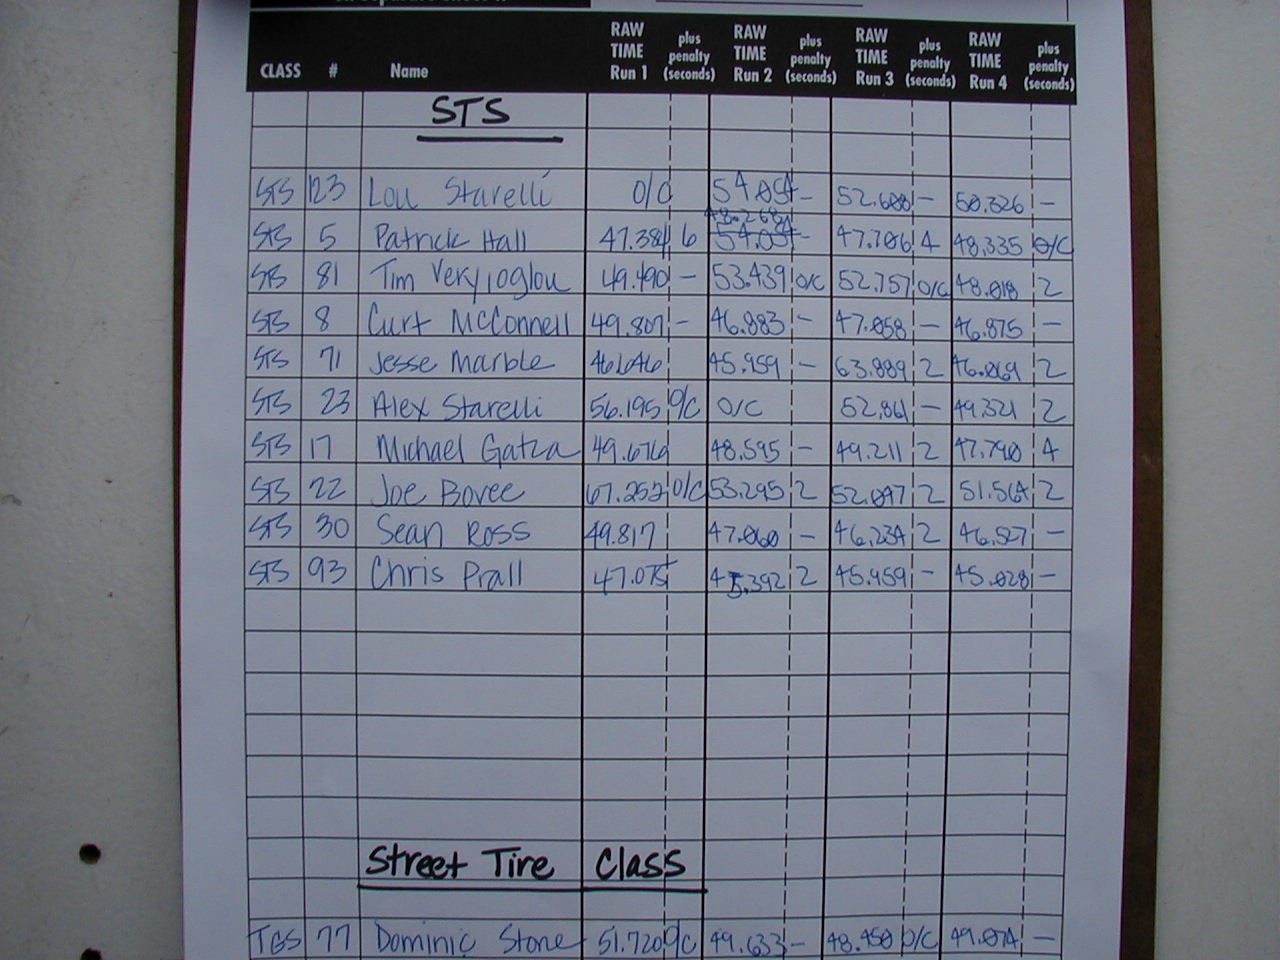 CLASS # Name RAW TIME Run 1 plus penalty (seconds) RAW TIME Run 2 plus penalty (seconds) RAW TIME Run 3 plus penalty (seconds) RAW TIME Run 4 plus penalty (seconds)
STS
STS 123 Lou Starelli O/C 54.054 - 52.608 - 50.326 -
48.268
STS 5 Patrick Hall 47.384 6 54.054 - 47.706 4 48.335 O/C
STS 81 Tim Veryioglou 49.490 - 53.439 O/C 52.757 O/C 48.018 2
STS 8 Curt McConnell 49.807 - 46.883 - 47.058 - 46.875 -
STS 71 Jesse Marble 46.646 45.959 - 63.889 2 46.069 2
STS 23 Alex Starelli 56.195 O/C O/C 52.861 - 49.321 2
STS 17 Michael Gatza 49.676 48.595 - 49.211 2 47.790 4
STS 22 Joe Bovee 67.252 O/C 53.295 2 52.097 2 51.564 2
STS 30 Sean Ross 49.817 47.060 - 46.234 2 46.527 -
STS 93 Chris Prall 47.075 45.392 2 45.459 - 45.028 -
Street Tire Class
TGS 77 Dominic Stone 51.720 O/C 49.633 - 48.450 O/C 49.074 -